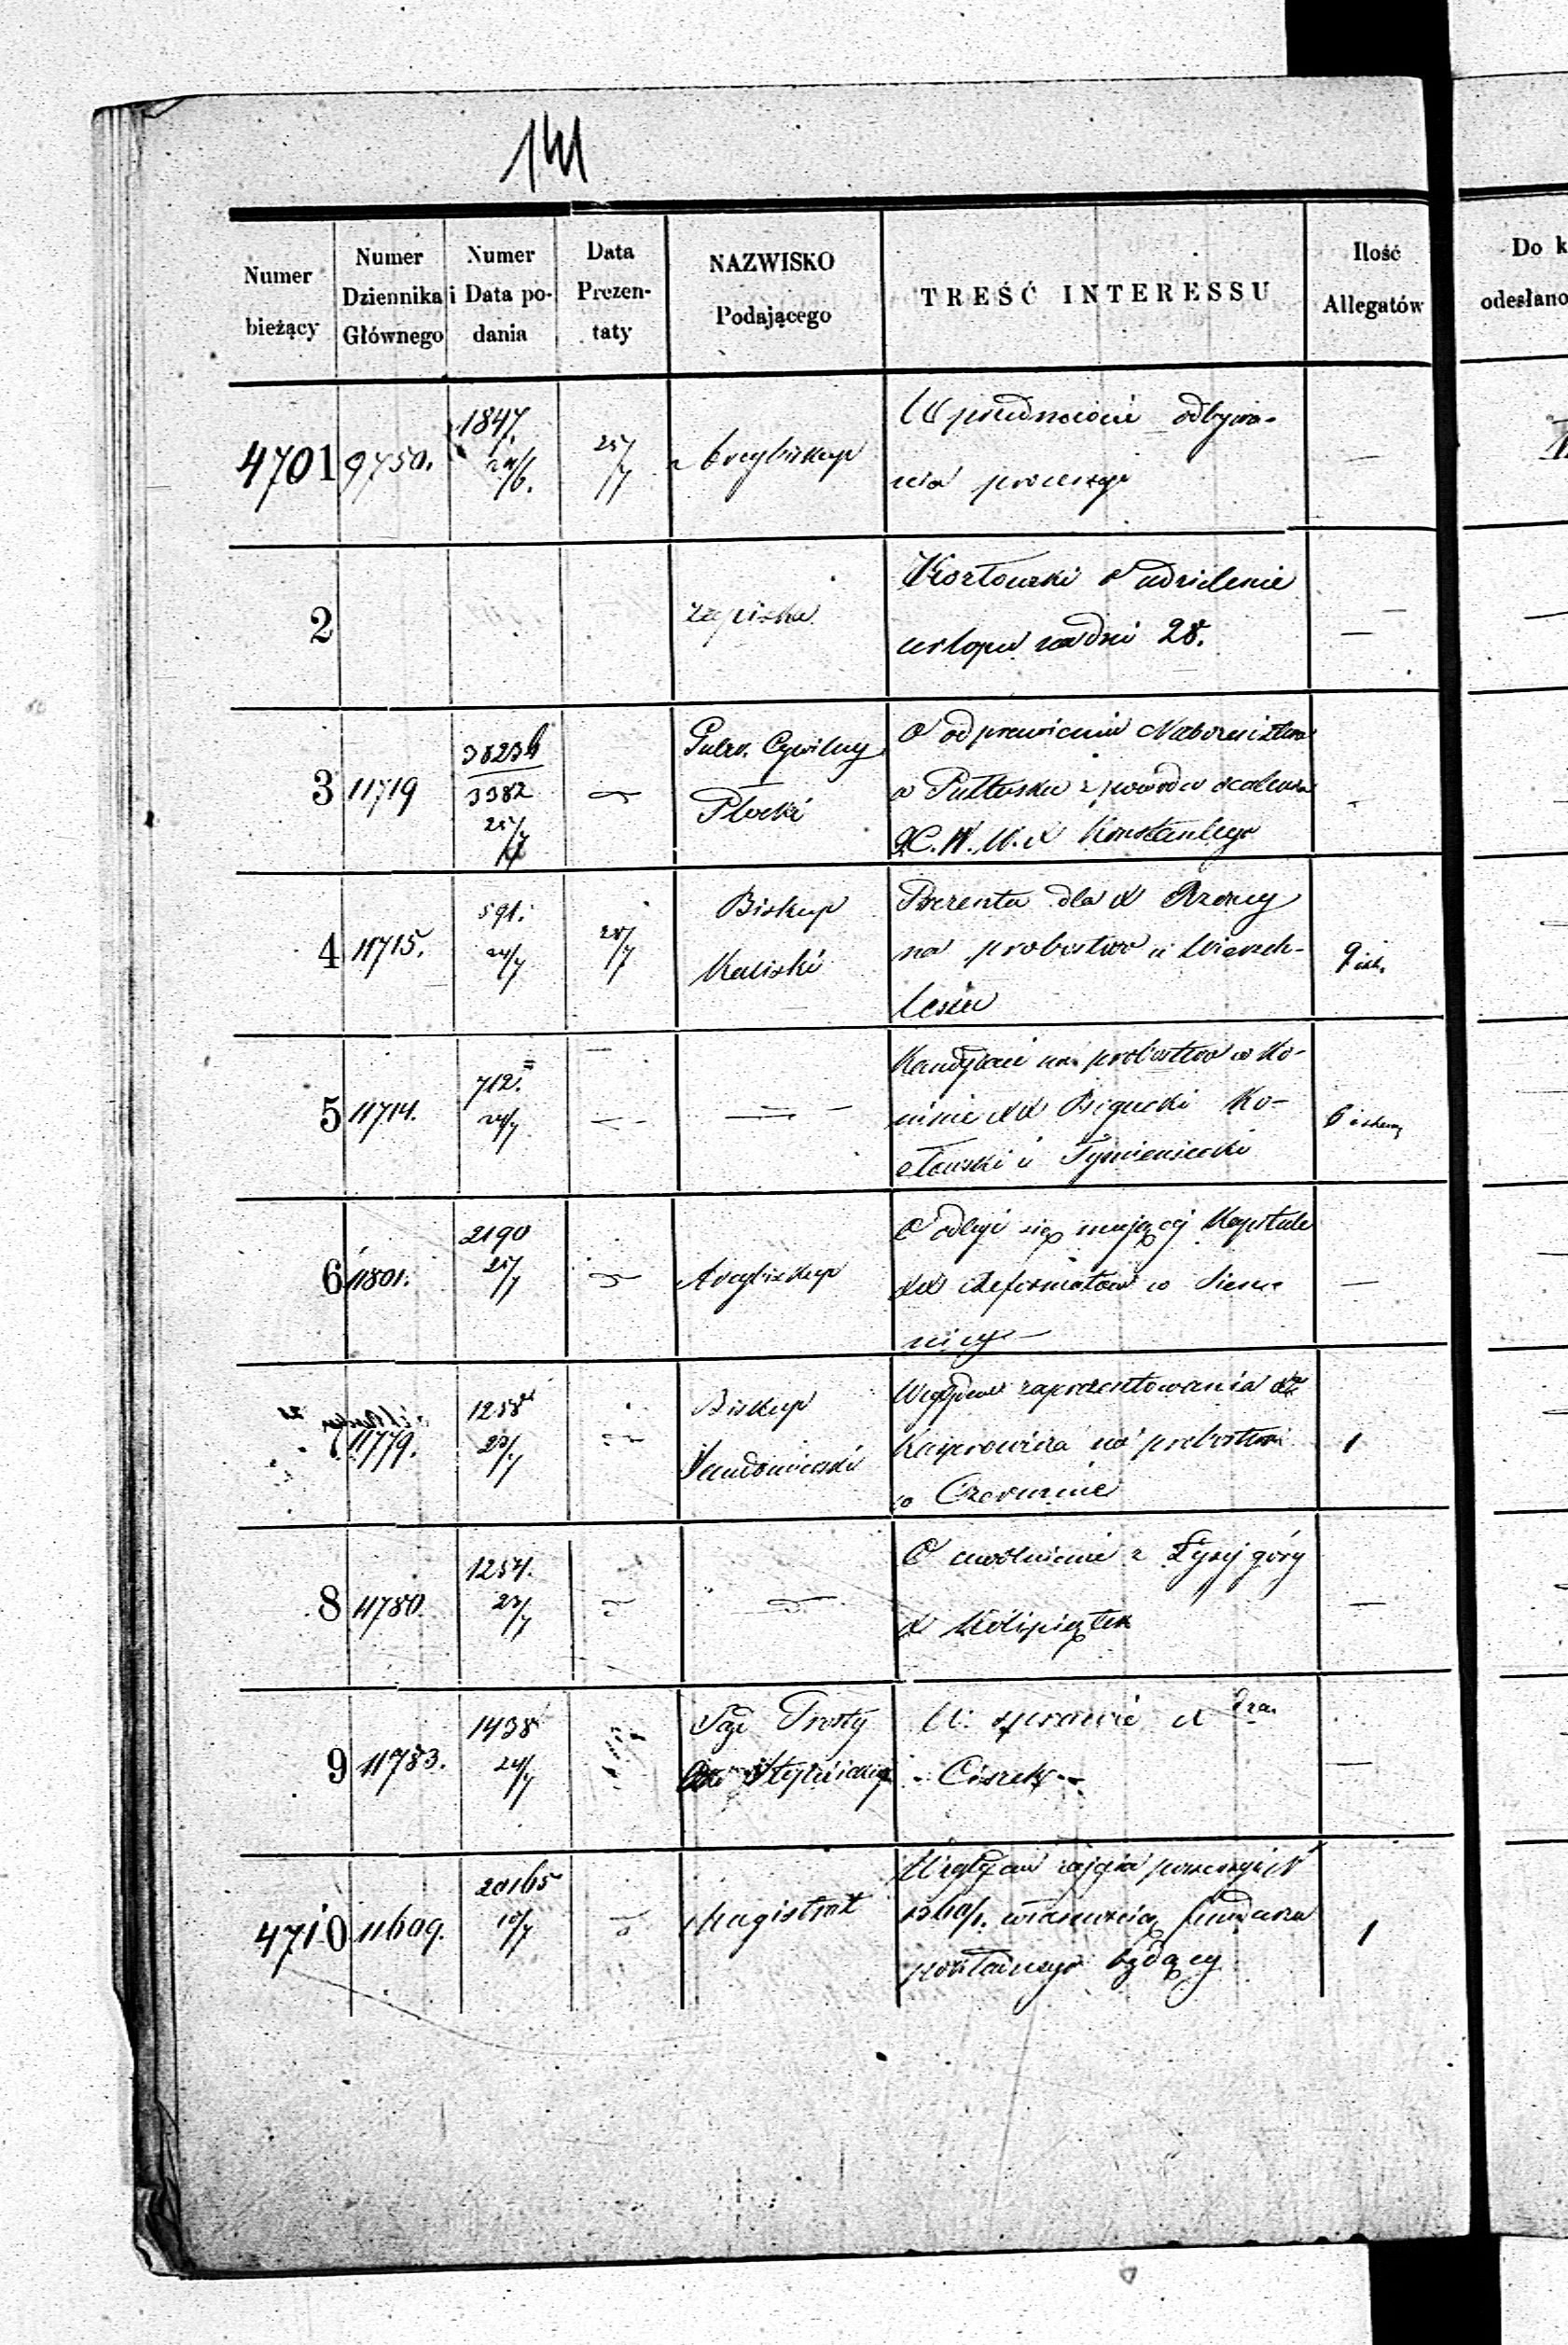 141
Numer bieżący
Numer Dziennika Głównego
Numer i Data podania
Data Prezentaty
NAZWISKO Podającego
TREŚĆ INTERESSU
Ilość Allegatów
Do k
odesłano
4701 9750. 1847. 24/6. 25/7 Arcybiskup
W przedmiocie odbywa-
nia processyi
—
2 zapiska
Kozłowski o udzielenie
urlopu na dni 28.
—
3 11719 38234 3382 25/7
Gub. Cywilny
Płocki
O odprawieniu Nabożeństwa
w Pułtusku z powodu
Konstantego
4 11715. 591. 24/7 25/7
Biskup
Kaliski
Prezenta dla X Rzency
na probostwo w Wierzch-
lesiu
9
5 11714. 712. 24/7
na probostwo w Ko-
ninie XX Bigucki Ko-
złowski i Tymieniecki
6
6 11801. 2190 25/7
Arcybiskup
O odbyć się mającej Kapitule
XX Reformatów w Sien-
nicy —
—
7 11779. 1258 23/7
Biskup
Sandomierski
Względem zaprezentowania X
Kasprowicza na probostwo
w Czerminie
1
8 11780. 1257. 23/7
O uwolnienie z Łysej góry
X Półpiątek
—
9 11783. 1438 24/7
Sąd Prosty
W sprawie X
Ciszek
—
4710 11609. 20165 10/7
Magistrat
Względem zajęcia possessyi N
własnością funduszu
będący
1